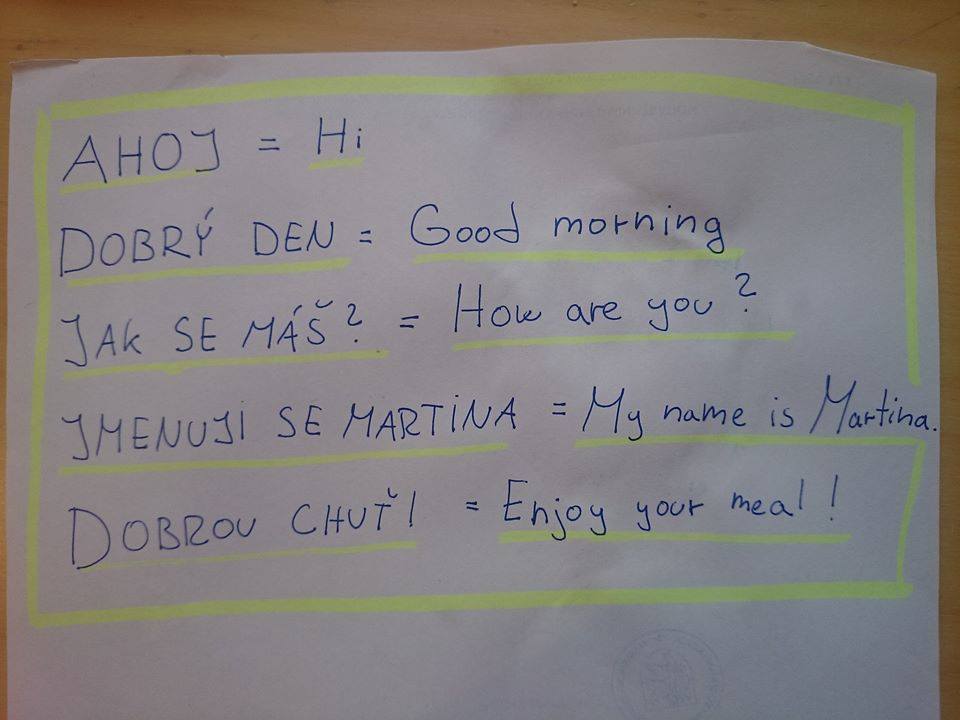 AHOJ = Hi
DOBRÝ DEN = Good morning
JAK SE MÁŠ? = How are you?
JMENUJI SE MARTINA = My name is Martina.
DOBROU CHUŤ! = Enjoy your meal!